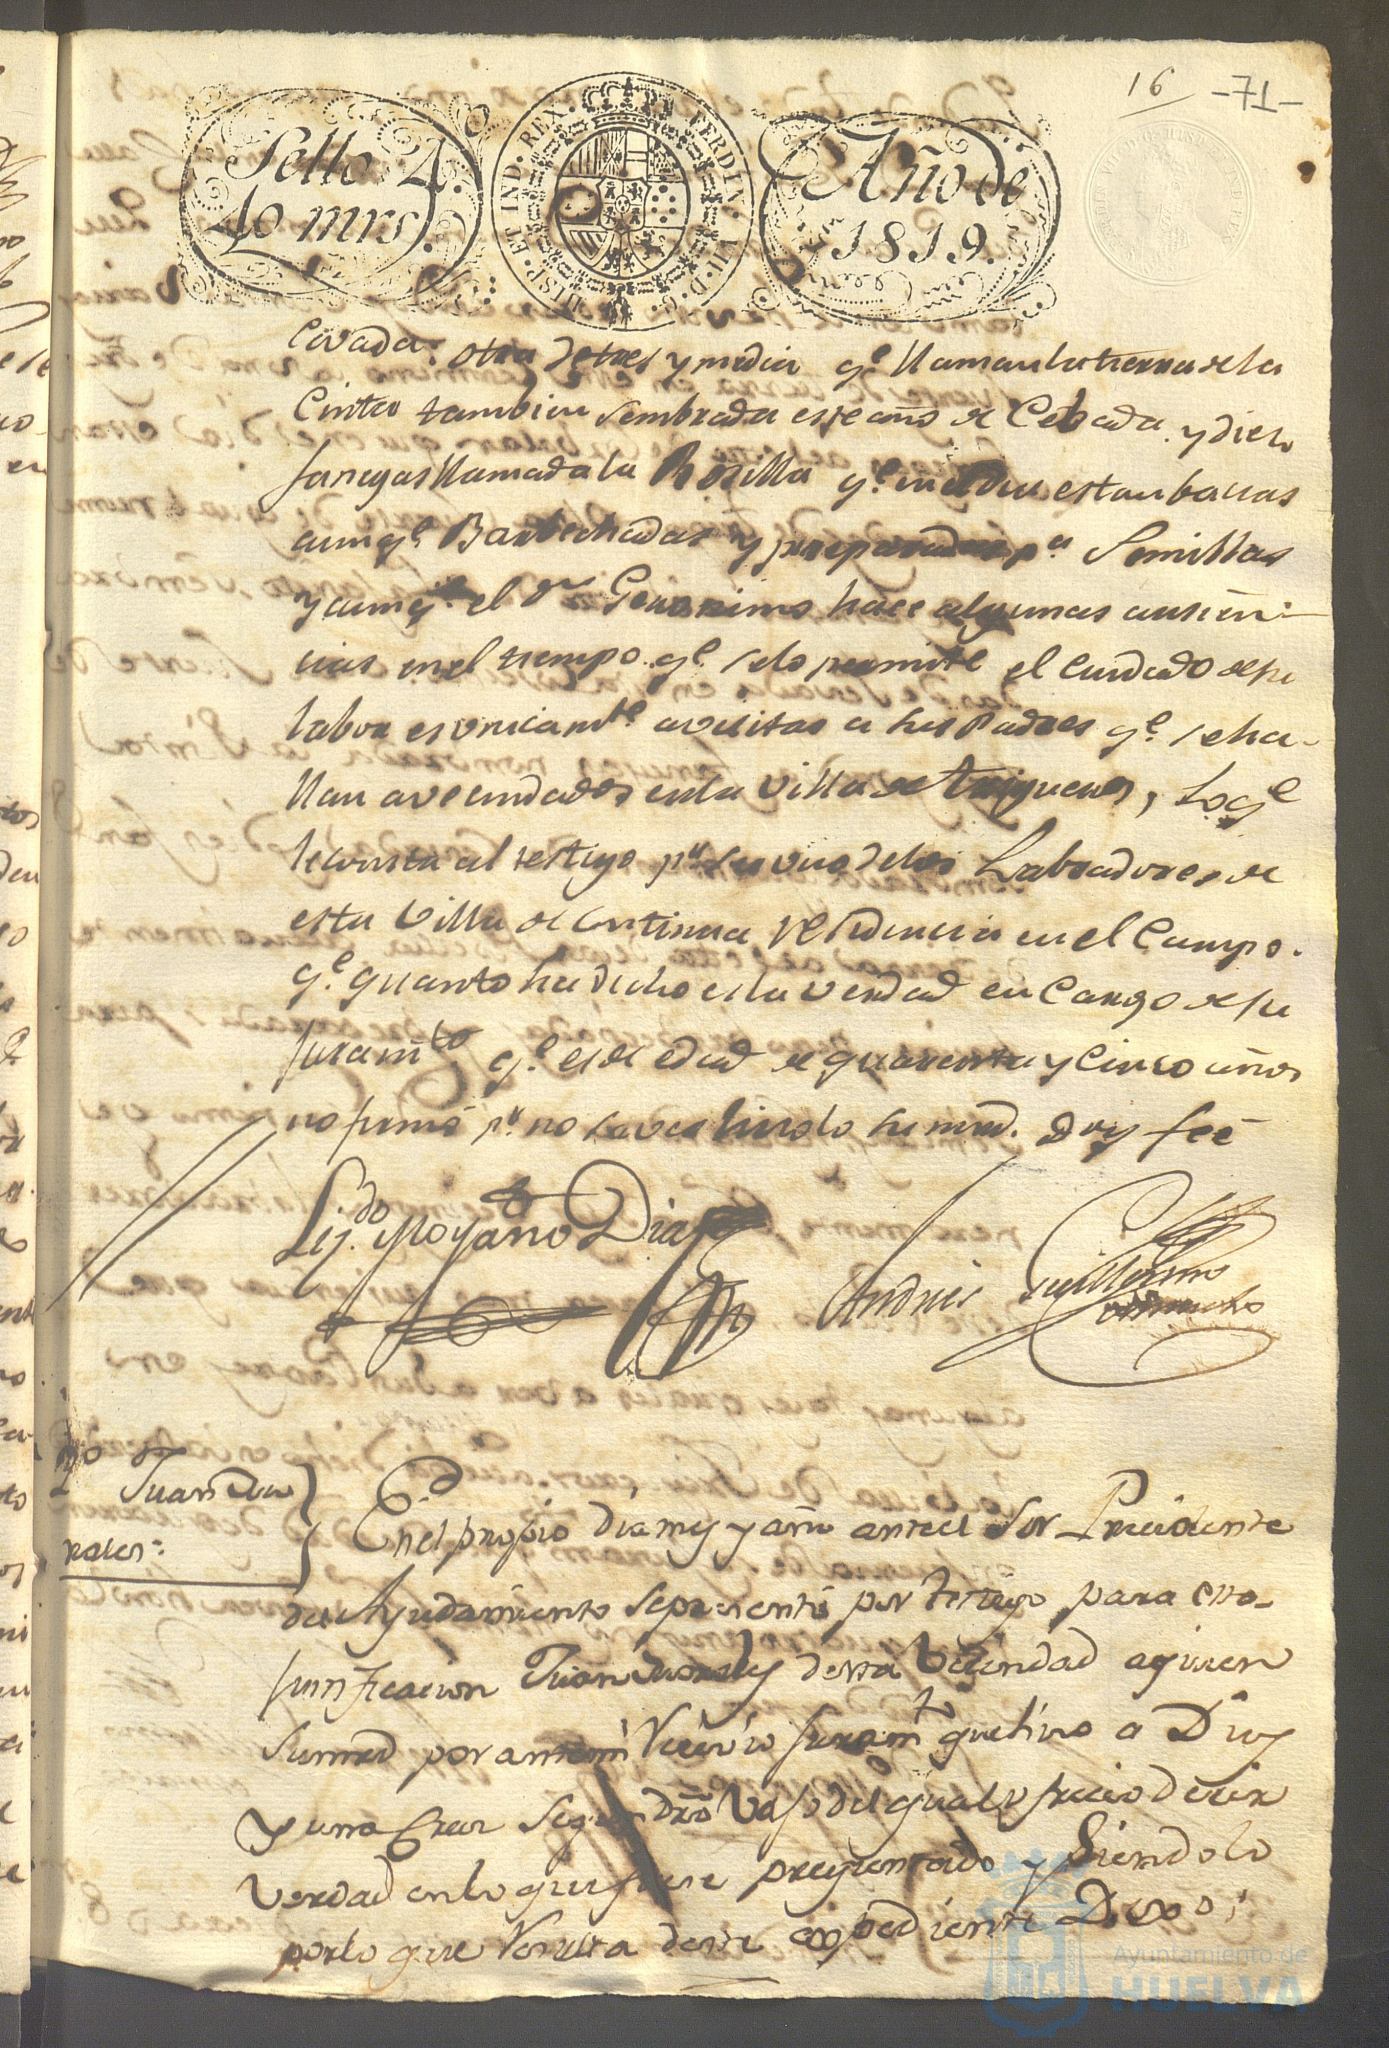 16 -71-
Sello 4.
40 mrs.
HISP. ET IND. REX. FERDIN. VII. D. G.
Año de
1819.
Cavada: otra de tres y media qe. llaman la tierra de la
Cinta tambien sembrada este año de Cebada y diez
fanegas llamada la Rosilla qe. en el dia estan bacias
aunqe. Barbechadas y preparadas pa. Semillas
y aunqe. el dn. Geronimo hace algunas ausen-
cias en el tiempo qe. se lo permite el cuidado de su
labor es unicamte. a visitar a sus Padres qe. se ha-
llan avecindados en la Villa de Trigueros, Lo qe.
le consta al testigo pr. ser uno de los Labradores de
esta Villa de continua residencia en el Campo.
qe. quanto ha dicho es la verdad en Cargo de su
juramto. qe. es de edad de quarenta y Cinco años
no firmó pr. no saver hizolo su mrd. Doy feé
Lizdo. Moyano Diaz
Andres Guillermo
Tgo.
Juan Mo
rales:
En el propio dia mes y año ante el Sor. Precidente
del Ayuntamiento se presentó por testigo para esta
justificacion Juan Morales de esta Vecindad a quien
su mrd por ante mi recivio juramto. que hizo a Dios
y una Cruz segun dro. vajo del qual ofrecio decir
verdad en lo que fuere preguntado y siendolo
por lo que resulta de este expediente Dixo:
Ayuntamiento de
HUELVA